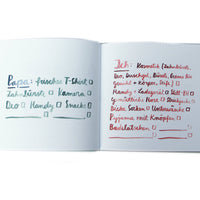 Papa: frisches T-Shirt □
Zahnbürste □ Kamera □
Deo □ Handy □ Snacks □
Ich: Kosmetik (Zahnbürste,
Deo, Duschgel, Bürste, Creme für
Gesicht + Körper,
Handy + Ladegerät □ Still-BH □
Gemütliche Hose □
Dicke Socken □ Unterwäsche □
Pyjama mit Knöpfen □
Badelatschen □